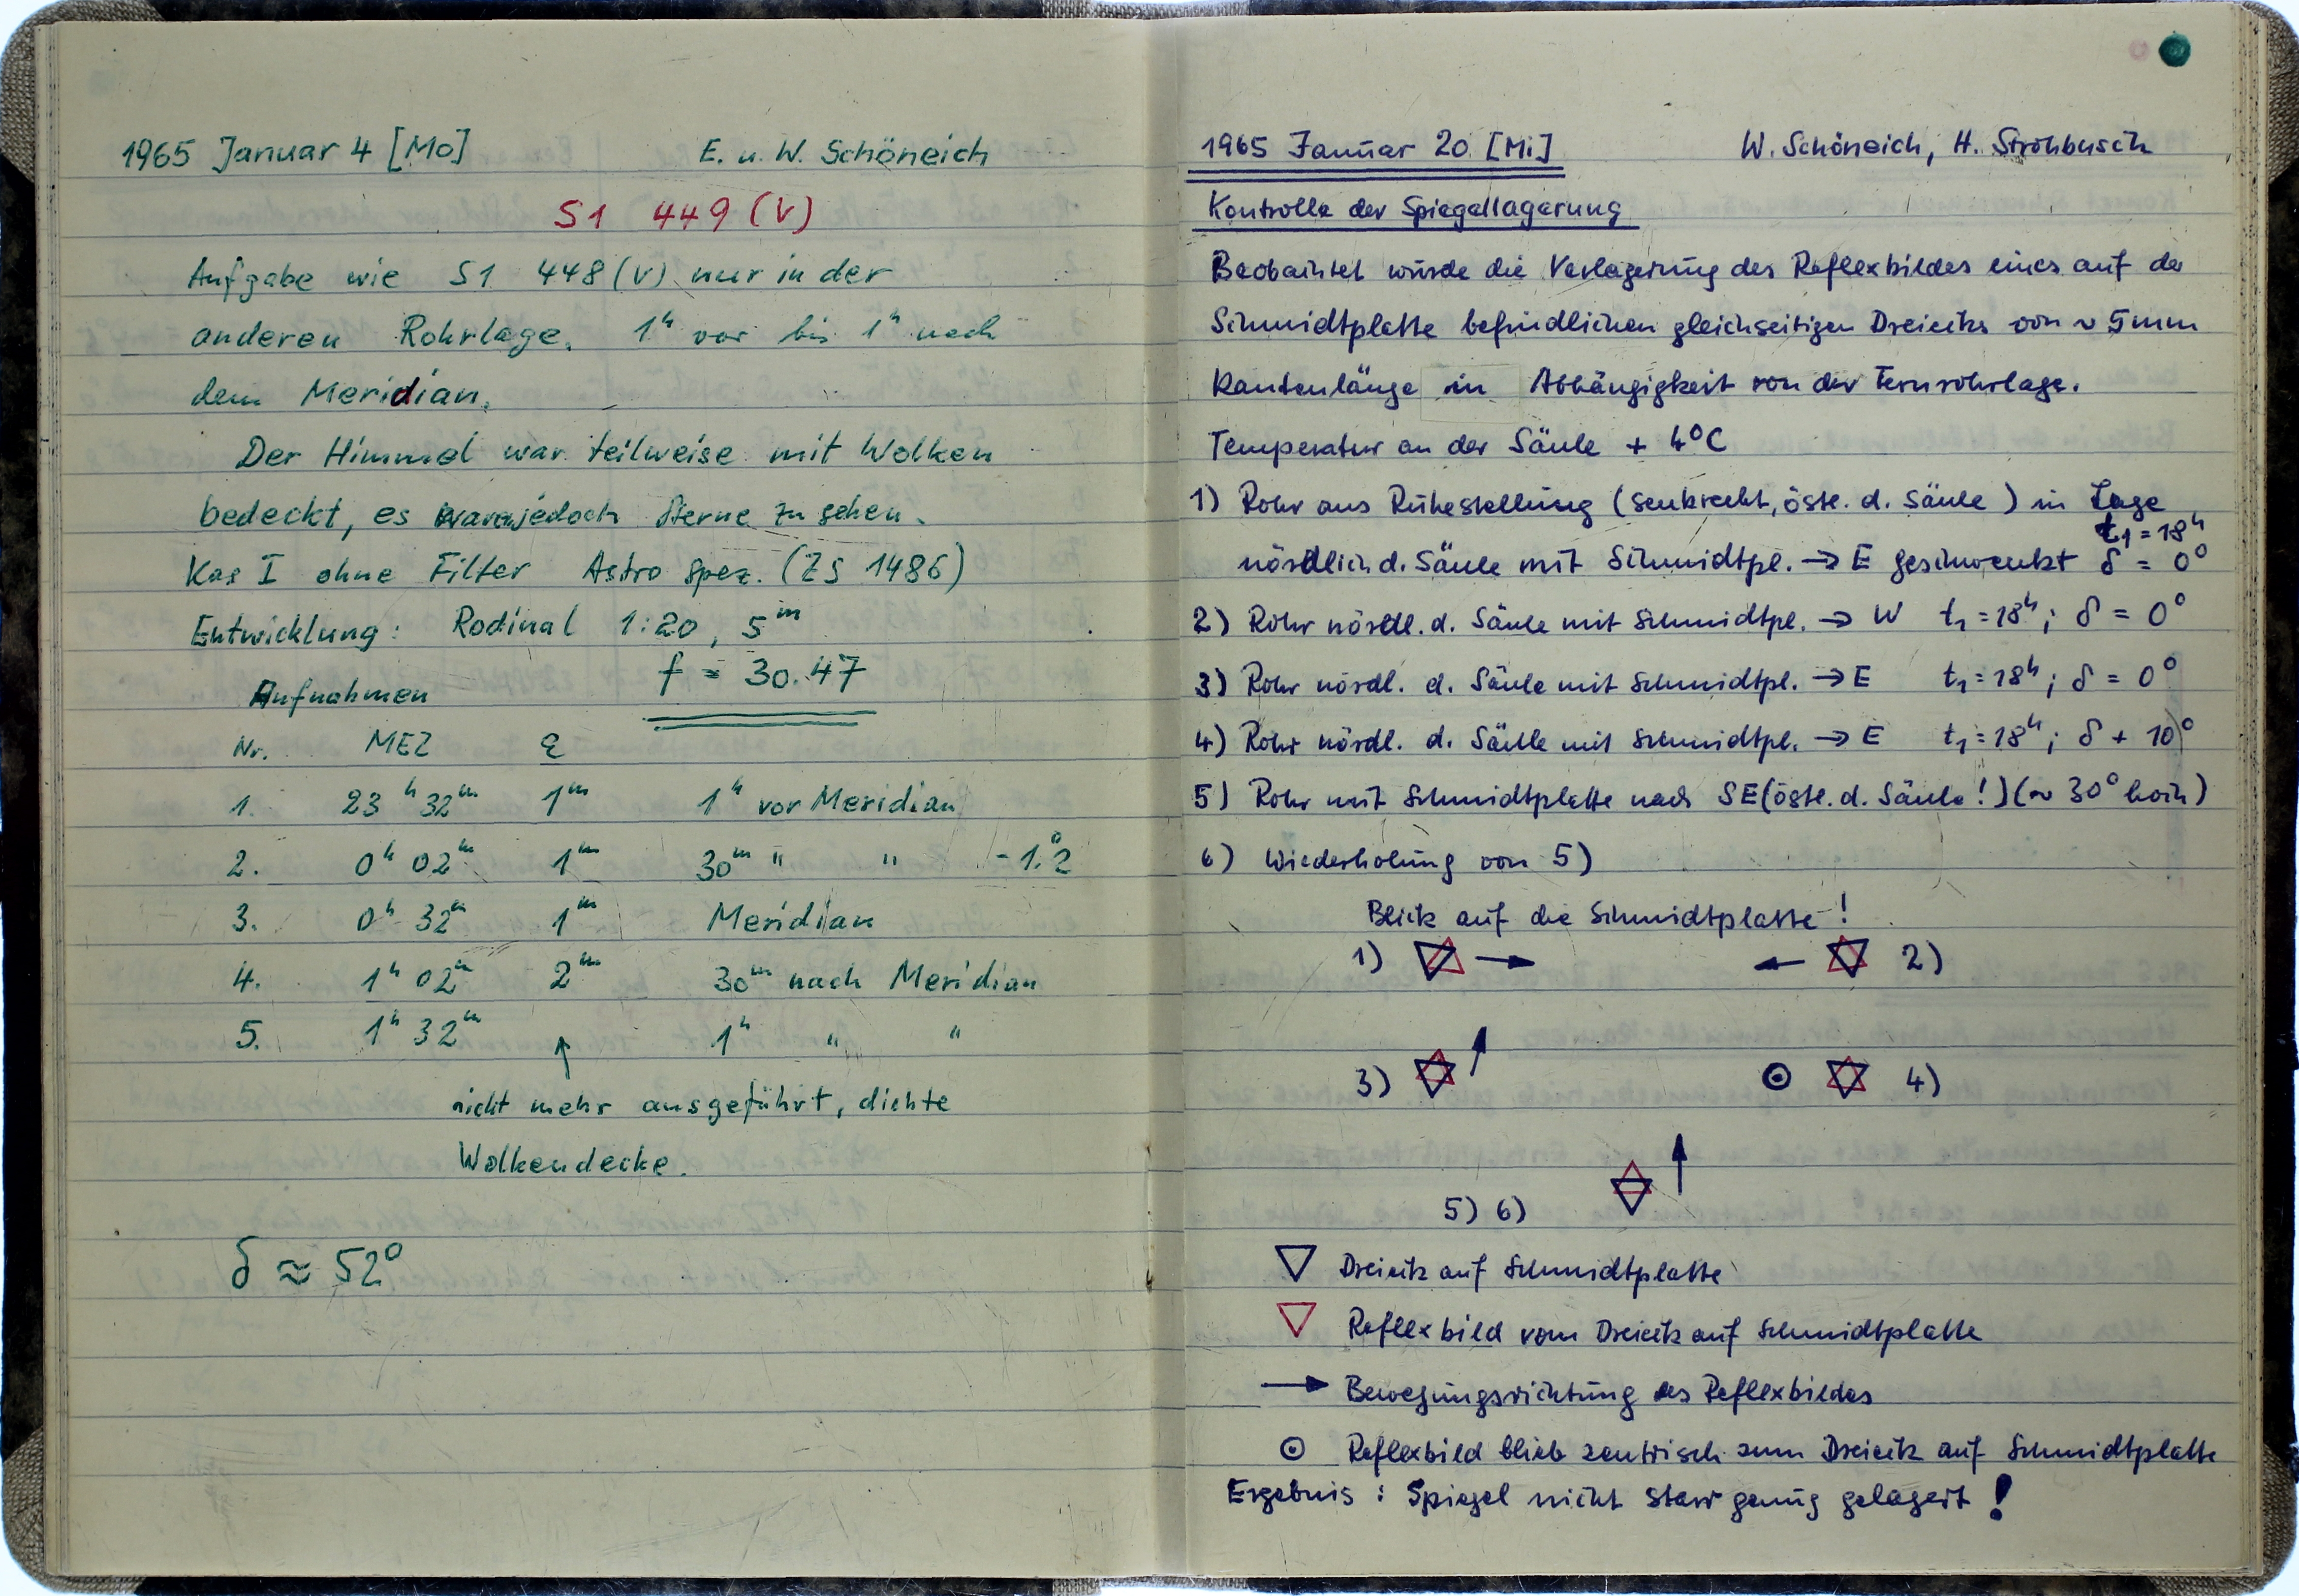 1965 Januar 4 [Mo] E. u. W. Schöneich
S1 449 (V)
Aufgabe wie S1 448 (V) nur in der
anderen Rohrlage. 1ʰ vor bis 1ʰ nach
dem Meridian.
Der Himmel war teilweise mit Wolken
bedeckt, es waren jedoch Sterne zu sehen.
Kas I ohne Filter Astro spez. (ZS 1486)
Entwicklung: Rodinal 1:20, 5ᵐ
f = 30.47
Aufnahmen
Nr. MEZ
1. 23ʰ 32ᵐ 1ᵐ 1ʰ vor Meridian
2. 0ʰ 02ᵐ 1ᵐ 30ᵐ " " -1.°2
3. 0ʰ 32ᵐ 1ᵐ Meridian
4. 1ʰ 02ᵐ 2ᵐ 30ᵐ nach Meridian
5. 1ʰ 32ᵐ ↑ 1ʰ " "
nicht mehr ausgeführt, dichte
Wolkendecke.
δ ≈ 52°
1965 Januar 20 [Mi] W. Schöneich, H. Strohbusch
Kontrolle der Spiegellagerung
Beobachtet wurde die Verlagerung des Reflexbildes eines auf der
Schmidtplatte befindlichen gleichseitigen Dreiecks von ~ 5mm
Kantenlänge in Abhängigkeit von der Fernrohrlage.
Temperatur an der Säule + 4°C
1) Rohr aus Ruhestellung (senkrecht, östl. d. Säule) in Lage
t₁ = 18ʰ
nördlich d. Säule mit Schmidtpl. → E geschwenkt δ = 0°
2) Rohr nördl. d. Säule mit Schmidtpl. → W t₁ = 18ʰ; δ = 0°
3) Rohr nördl. d. Säule mit Schmidtpl. → E t₁ = 18ʰ; δ = 0°
4) Rohr nördl. d. Säule mit Schmidtpl. → E t₁ = 18ʰ; δ + 10°
5) Rohr mit Schmidtplatte nach SE (östl. d. Säule!) (~ 30° hoch)
6) Wiederholung von 5)
Blick auf die Schmidtplatte!
1) → ← 2)
3) ⊙ 4)
5) 6)
▽ Dreieck auf Schmidtplatte
▽ Reflexbild vom Dreieck auf Schmidtplatte
→ Bewegungsrichtung des Reflexbildes
⊙ Reflexbild blieb zentrisch zum Dreieck auf Schmidtplatte
Ergebnis: Spiegel nicht starr genug gelagert!